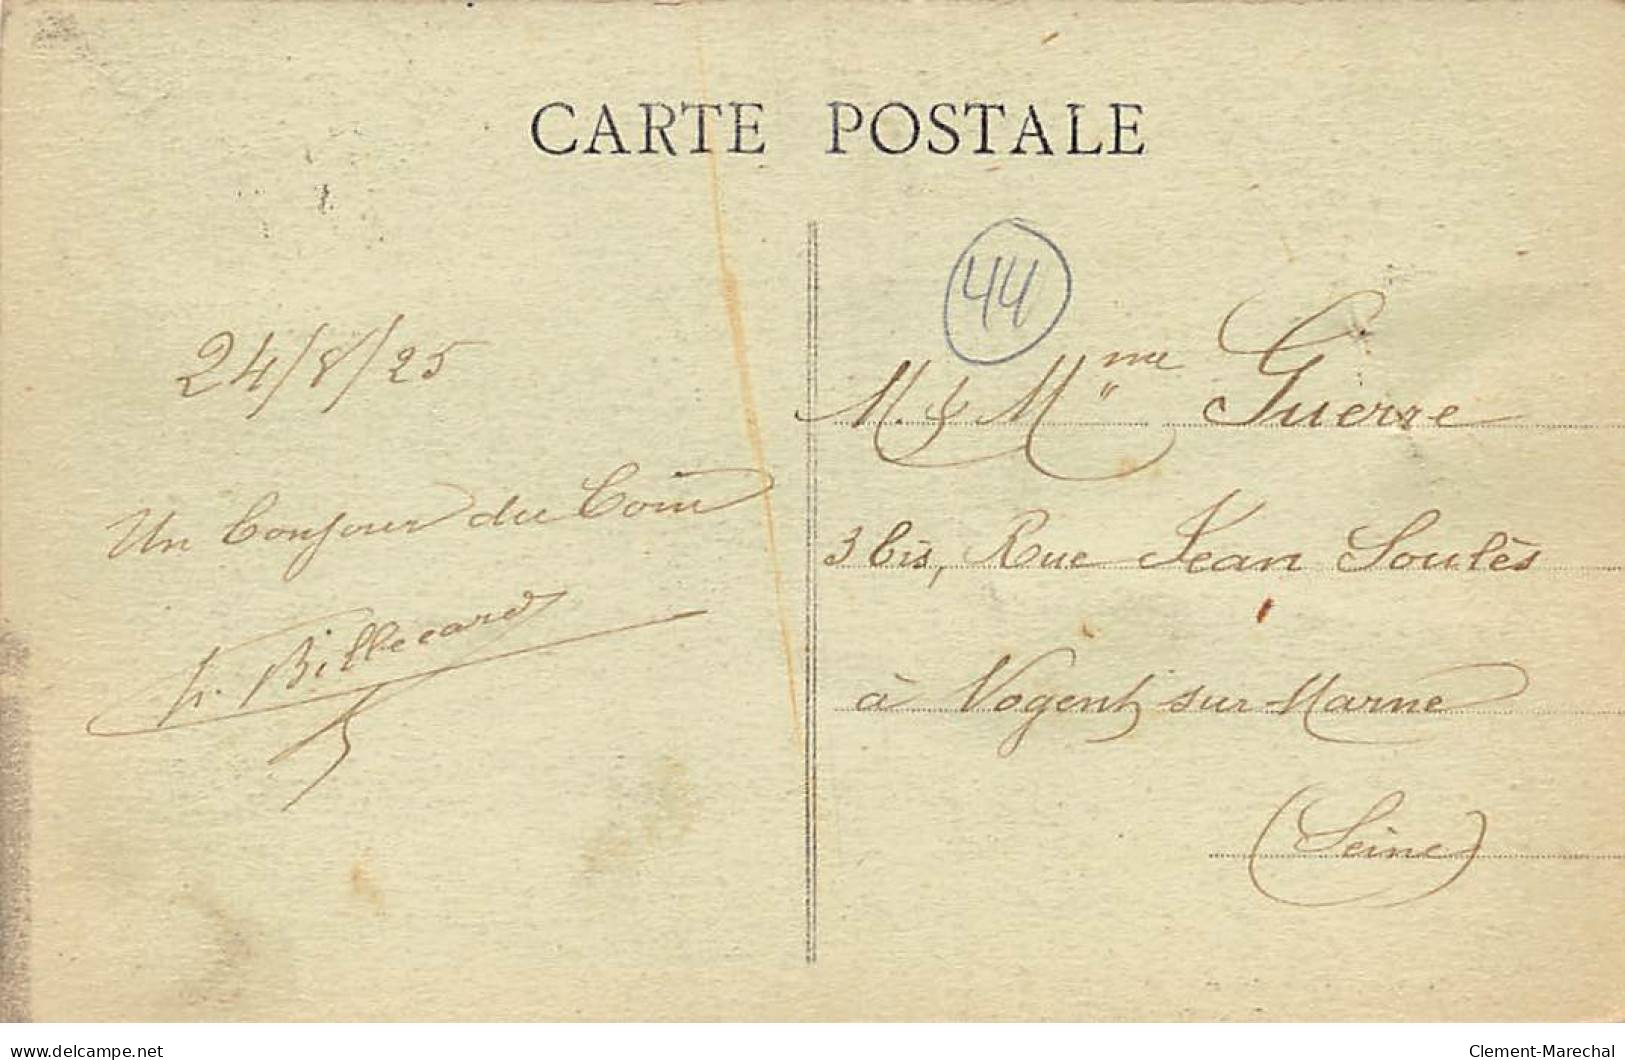 CARTE POSTALE
44
24/8/25
Un bonjour du Coin
h. Billecard
M. & Mme Guerre
3 bis, Rue Jean Soulès
à Nogent sur Marne
(Seine)
delcampe.net
Clement-Marechal